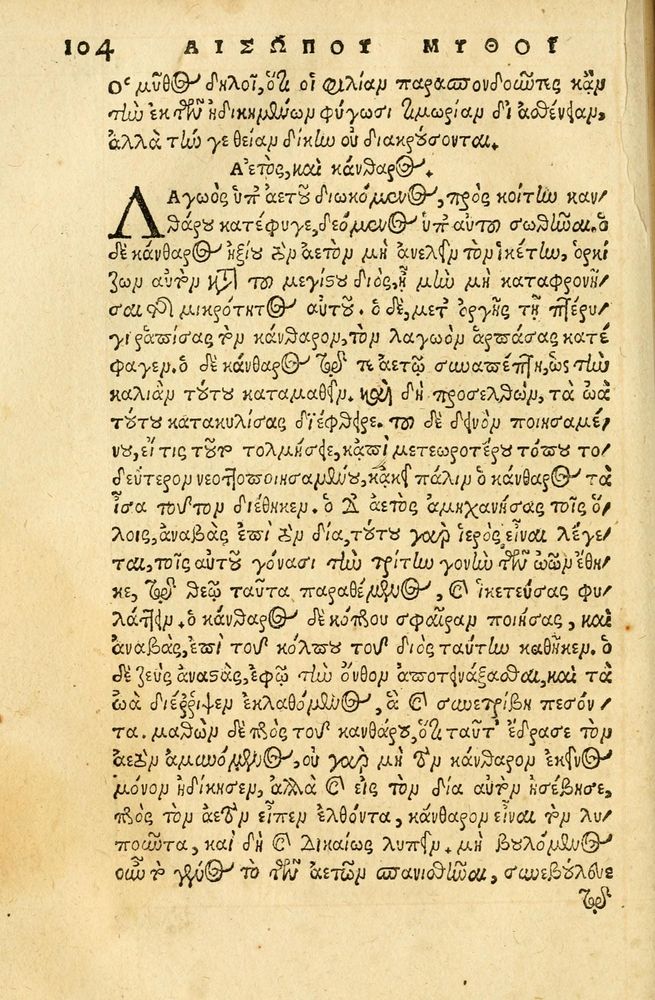 104 ΑΙΣΩΠΟΥ ΜΥΘΟΙ
Ο μῦθος δηλοῖ, ὅτι οἱ φιλίαν παρασπονδοῦντες κἂν
τὴν ἐκ τῶν ἠδικημένων φύγωσι τιμωρίαν δι' ἀσθένειαν,
ἀλλὰ τήν γε θείαν δίκην οὐ διακρούσονται.
Ἀετὸς, καὶ κάνθαρος.
ΛΑγωὸς ὑπ' ἀετοῦ διωκόμενος, πρὸς κοίτην καν/
θάρου κατέφυγε, δεόμενος ὑπ' αὐτοῦ σωθῆναι. ὁ
δὲ κάνθαρος ἠξίου τὸν ἀετὸν μὴ ἀνελεῖν τὸν ἱκέτην, ὁρκί
ζων αὐτὸν κατὰ τοῦ μεγίστου διὸς, ἦ μὴν μὴ καταφρονῆ/
σαι τῆς μικρότητος αὐτοῦ. ὁ δὲ, μετ' ὀργῆς τῇ πτέρυ/
γι ῥαπίσας τὸν κάνθαρον, τὸν λαγωὸν ἁρπάσας κατέ
φαγεν. ὁ δὲ κάνθαρος τῷ τε ἀετῷ συναπέπτη, ὡς τὴν
καλιὰν τούτου καταμαθεῖν. καὶ δὴ προσελθὼν, τὰ ὠὰ
τούτου κατακυλίσας διέφθειρε. τοῦ δὲ δεινὸν ποιησαμέ/
νου, εἴ τις τοῦτο τολμήσειε, κἀπὶ μετεωροτέρου τόπου τὸ/
δεύτερον νεοττοποιησαμένου, κἀκεῖ πάλιν ὁ κάνθαρος τὰ
ἶσα τοῦτον διέθηκεν. ὁ δ' ἀετὸς ἀμηχανήσας τοῖς ὅ/
λοις, ἀναβὰς ἐπὶ τὸν δία, τούτου γὰρ ἱερὸς εἶναι λέγε/
ται, τοῖς αὐτοῦ γόνασι τὴν τρίτην γονὴν τῶν ὠῶν ἔθη/
κε, τῷ θεῷ ταῦτα παραθέμενος, καὶ ἱκετεύσας φυ/
λάττειν. ὁ κάνθαρος δὲ κόπρου σφαῖραν ποιήσας, καὶ
ἀναβὰς, ἐπὶ τοῦ κόλπου τοῦ διὸς ταύτην καθῆκεν. ὁ
δὲ ζεὺς ἀναστὰς, ἐφ' ᾧ τὴν ὄνθον ἀποτινάξασθαι, καὶ τὰ
ὠὰ διέῤῥιψεν ἐκλαθόμενος, ἃ καὶ συνετρίβη πεσόν/
τα. μαθὼν δὲ πρὸς τοῦ κανθάρου, ὅτι ταῦτ' ἔδρασε τὸν
ἀετὸν ἀμυνόμενος, οὐ γὰρ μὴ τὸν κάνθαρον ἐκεῖνο
μόνον ἠδίκησεν, ἀλλὰ καὶ εἰς τὸν δία αὐτὸν ἠσέβησε,
πρὸς τὸν ἀετὸν εἶπεν ἐλθόντα, κάνθαρον εἶναι τὸν λυ/
ποῦντα, καὶ δὴ καὶ δικαίως λυπεῖν. μὴ βουλόμενος
οὖν τὸ γένος τὸ τῶν ἀετῶν σπανισθῆναι, συνεβούλευε
τῷ